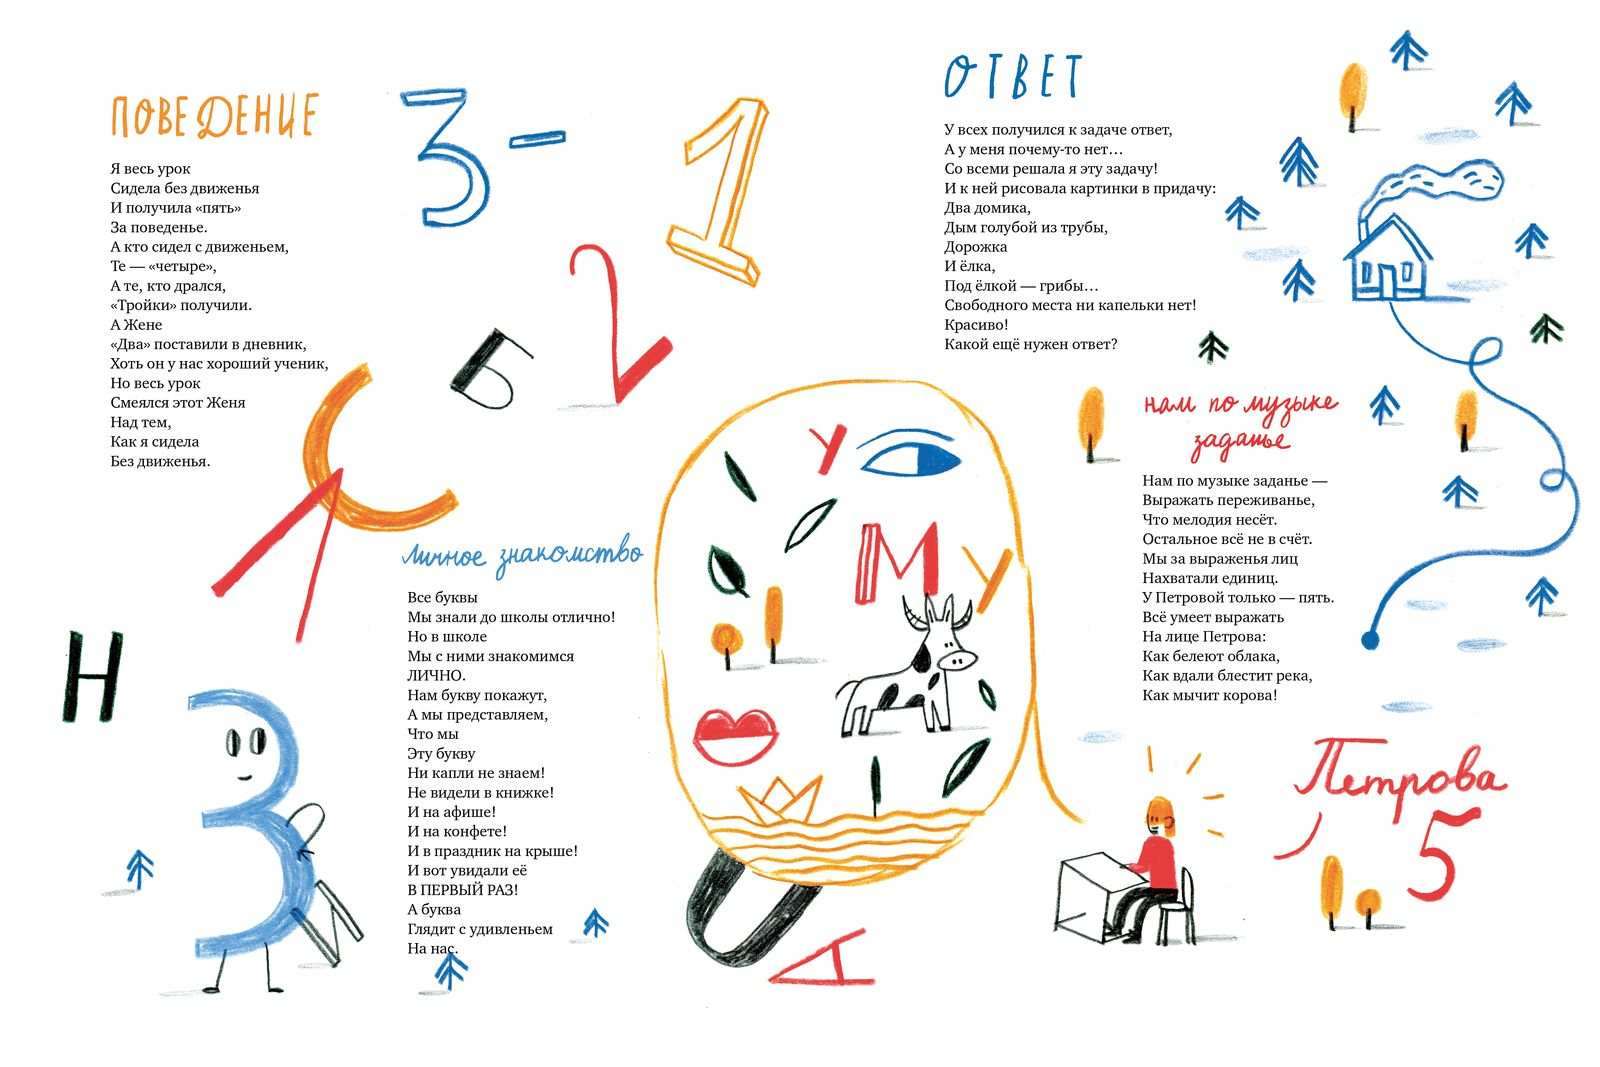 ПОВЕДЕНИЕ
Я весь урок
Сидела без движенья
И получила «пять»
За поведенье.
А кто сидел с движеньем,
Те — «четыре»,
А те, кто дрался,
«Тройки» получили.
А Жене
«Два» поставили в дневник,
Хоть он у нас хороший ученик,
Но весь урок
Смеялся этот Женя
Над тем,
Как я сидела
Без движенья.
3-
1
2
Ь
С
Л
Н
З
И
Личное знакомство
Все буквы
Мы знали до школы отлично!
Но в школе
Мы с ними знакомимся
ЛИЧНО.
Нам букву покажут,
А мы представляем,
Что мы
Эту букву
Ни капли не знаем!
Не видели в книжке!
И на афише!
И на конфете!
И в праздник на крыше!
И вот увидали её
В ПЕРВЫЙ РАЗ!
А буква
Глядит с удивленьем
На нас.
У
М У
А
ОТВЕТ
У всех получился к задаче ответ,
А у меня почему-то нет…
Со всеми решала я эту задачу!
И к ней рисовала картинки в придачу:
Два домика,
Дым голубой из трубы,
Дорожка
И ёлка,
Под ёлкой — грибы…
Свободного места ни капельки нет!
Красиво!
Какой ещё нужен ответ?
нам по музыке
заданье
Нам по музыке заданье —
Выражать переживанье,
Что мелодия несёт.
Остальное всё не в счёт.
Мы за выраженья лиц
Нахватали единиц.
У Петровой только — пять.
Всё умеет выражать
На лице Петрова:
Как белеют облака,
Как вдали блестит река,
Как мычит корова!
Петрова
5